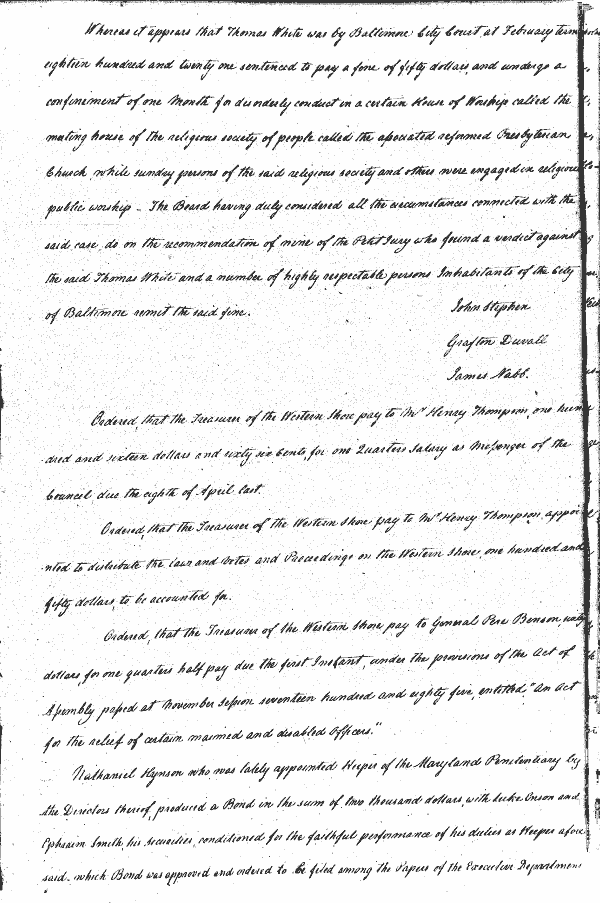 Whereas it appears that Thomas White was by Baltimore City Court, at February term
eighteen hundred and twenty one sentenced to pay a fine of fifty dollars, and undergo a
confinement of one Month for disorderly conduct in a certain House of Worship called the
meeting house of the religious society of people called the associated reformed Presbyterian
Church, while sunday persons of the said religious society and others were engaged in religious
public worship – The Board having duly considered all the circumstances connected with the
said case, do on the recommendation of nine of the Petit Jury who found a verdict against
the said Thomas White and a number of highly respectable persons Inhabitants of the City
of Baltimore remit the said fine.
John Stephen
Grafton Duvall
James Nabb.
Ordered, that the Treasurer of the Western Shore pay to Mr Henry Thompson, one hun
dred and sixteen dollars and sixty six Cents, for one Quarters Salary as Messenger of the
Council due the eighth of April last.
Ordered, that the Treasurer of the Western Shore pay to Mr Henry Thompson, appoi
nted to distribute the Laws and Votes and Proceedings on the Western Shore, one hundred and
fifty dollars, to be accounted for.
Ordered, that the Treasurer of the Western Shore pay to General Pere Benson, sixty
dollars, for one quarters half pay due the first Instant, under the provisions of the Act of
Assembly passed at November Session seventeen hundred and eighty five, entitled, "An Act
for the relief of certain maimed and disabled Officers."
Nathaniel Hynson who was lately appointed Keeper of the Maryland Penitentiary by
the Directors thereof, produced a Bond in the sum of two thousand dollars, with Luke Ensor and
Ephraim Smith, his Securities, conditioned for the faithful performance of his duties as Keeper afore
said – which Bond was approved and ordered to be filed among the Papers of the Executive Department